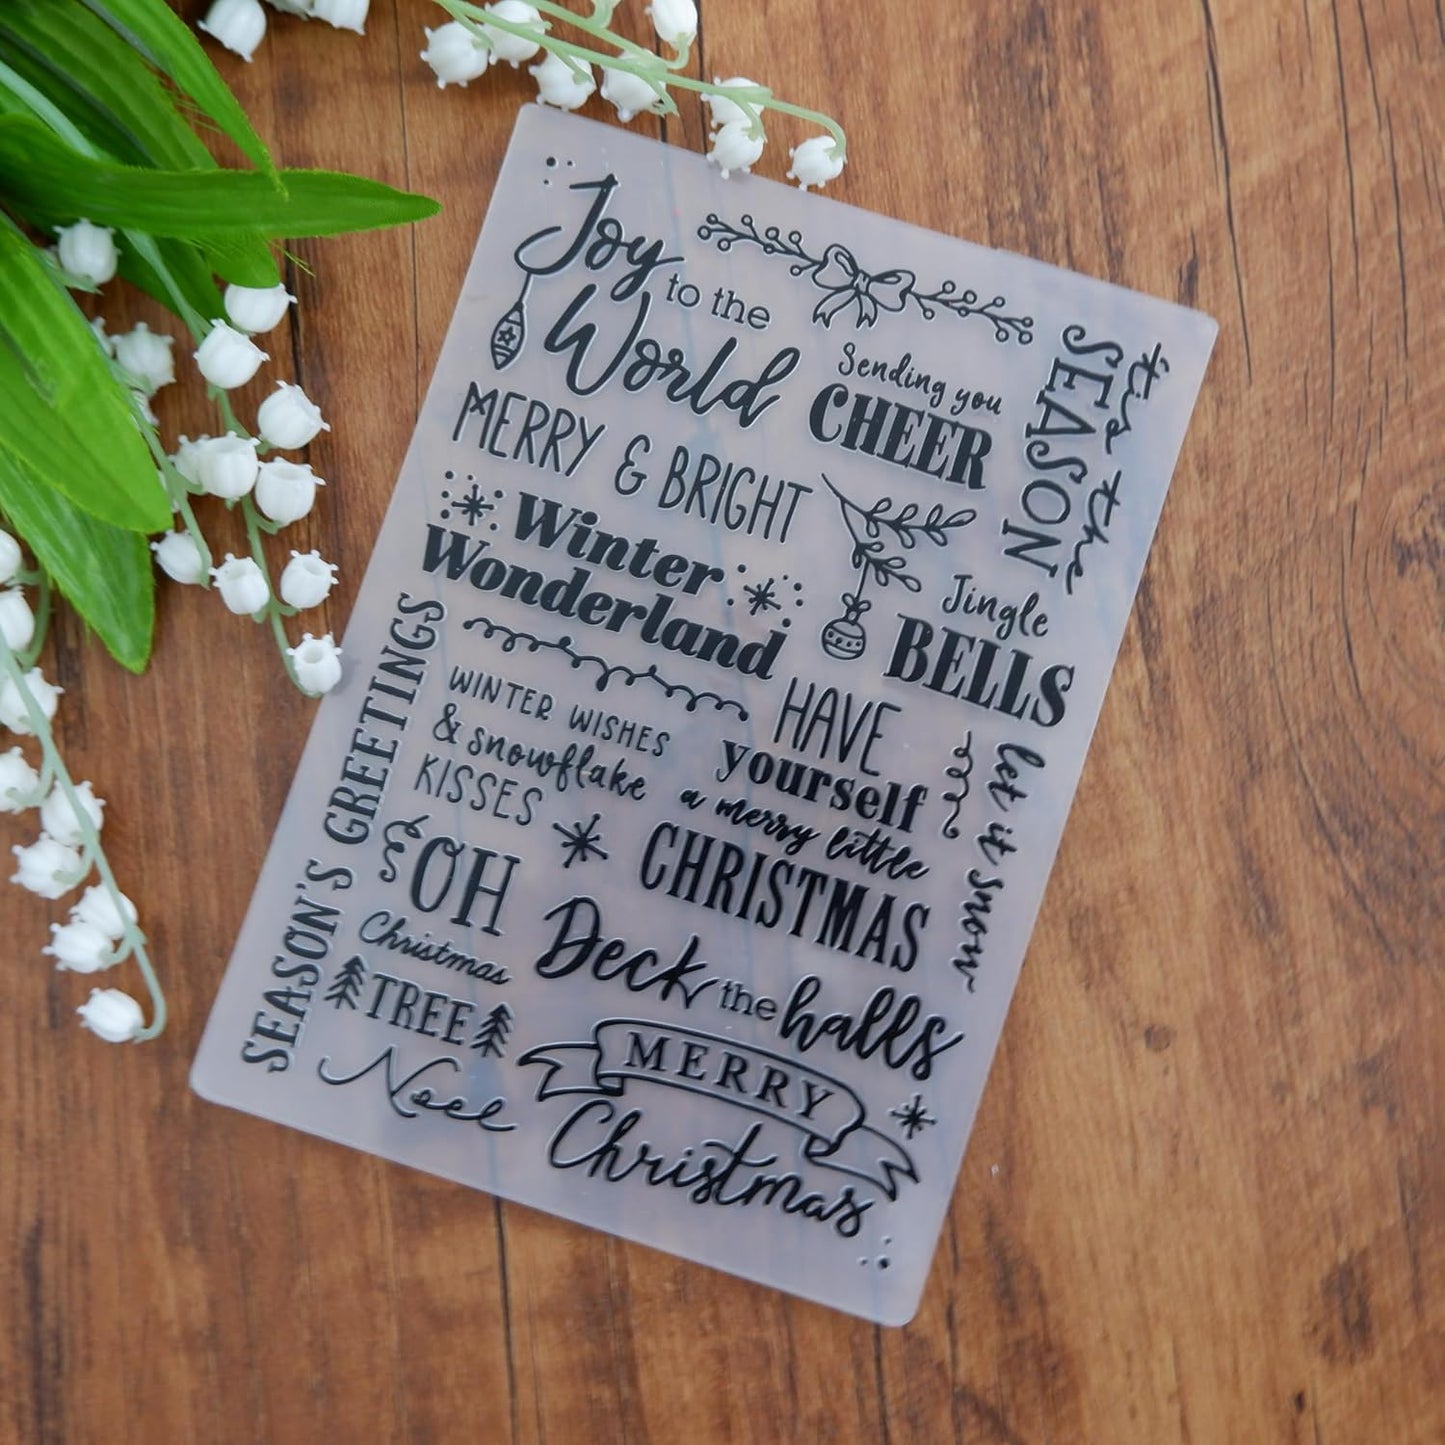 Joy
to the
World
Sending you
CHEER
'tis the
SEASON
MERRY & BRIGHT
Winter
Wonderland
Jingle
BELLS
SEASON'S GREETINGS
WINTER WISHES
& snowflake
KISSES
HAVE
yourself
a merry little
CHRISTMAS
let it snow
OH
Christmas
TREE
Deck the halls
Noel
MERRY
Christmas